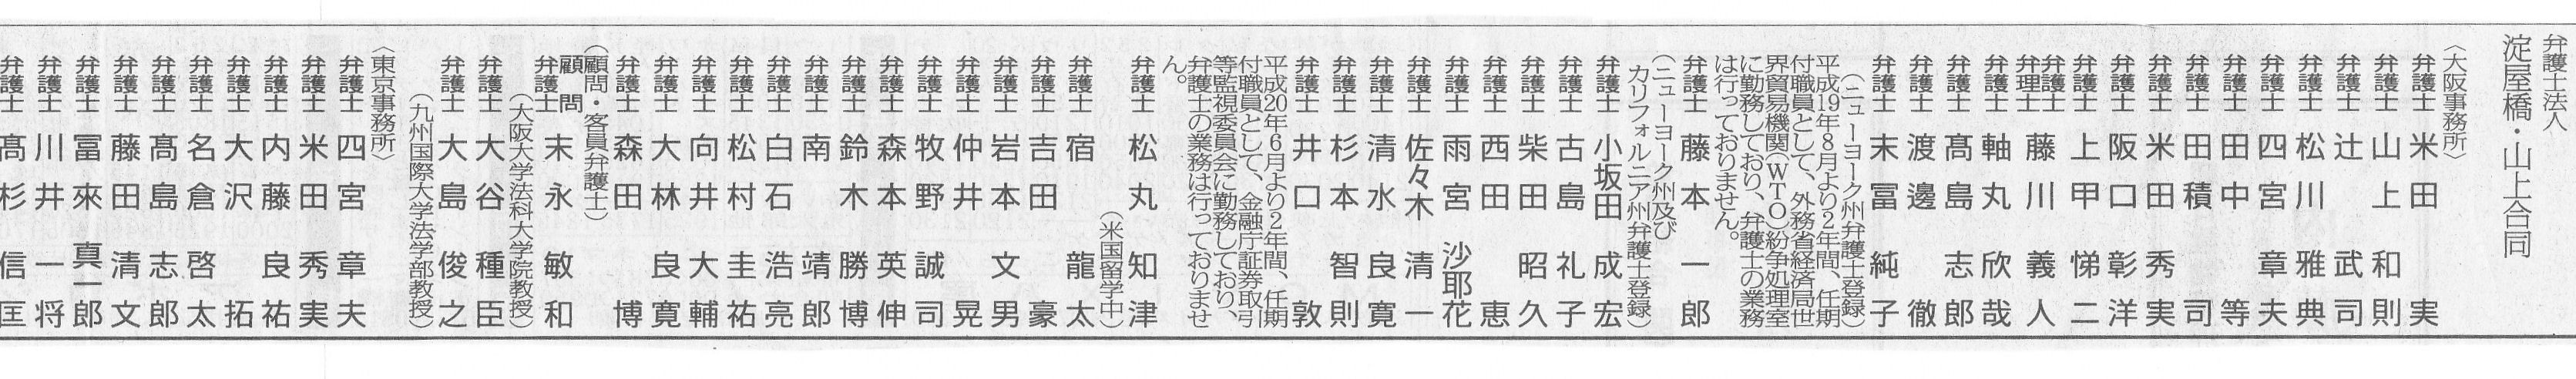 弁護士法人
淀屋橋・山上合同
〈大阪事務所〉
弁護士 米田 実
弁護士 山上 和則
弁護士 辻 武司
弁護士 松川 雅典
弁護士 四宮 章夫
弁護士 田中 等
弁護士 田積 司
弁護士 米田 秀実
弁護士 阪口 彰洋
弁護士 上甲 悌二
弁護士 弁理士 藤川 義人
弁護士 軸丸 欣哉
弁護士 髙島 志郎
弁護士 渡邊 徹
弁護士 末冨 純子
(ニューヨーク州弁護士登録)
平成19年8月より2年間、任期
付職員として、外務省経済局世
界貿易機関(WTO)紛争処理室
に勤務しており、弁護士の業務
は行っておりません。
弁護士 藤本 一郎
(ニューヨーク州及び
カリフォルニア州弁護士登録)
弁護士 小坂田 成宏
弁護士 古島 礼子
弁護士 柴田 昭久
弁護士 西田 恵
弁護士 雨宮 沙耶花
弁護士 佐々木 清一
弁護士 清水 良寛
弁護士 杉本 智則
弁護士 井口 敦
平成20年6月より2年間、任期
付職員として、金融庁証券取引
等監視委員会に勤務しており、
弁護士の業務は行っておりませ
ん。
弁護士 松丸 知津
(米国留学中)
弁護士 宿 龍太
弁護士 吉田 豪
弁護士 岩本 文男
弁護士 仲井 晃
弁護士 牧野 誠司
弁護士 森本 英伸
弁護士 鈴木 勝博
弁護士 南 靖郎
弁護士 白石 浩亮
弁護士 松村 圭祐
弁護士 向井 大輔
弁護士 大林 良寛
弁護士 森田 博
(顧問・客員弁護士)
顧問
弁護士 末永 敏和
(大阪大学法科大学院教授)
弁護士 大谷 種臣
弁護士 大島 俊之
(九州国際大学法学部教授)
〈東京事務所〉
弁護士 四宮 章夫
弁護士 米田 秀実
弁護士 内藤 良祐
弁護士 大沢 拓
弁護士 名倉 啓太
弁護士 髙島 志郎
弁護士 藤田 清文
弁護士 冨來 真一郎
弁護士 川井 一将
弁護士 髙杉 信匡